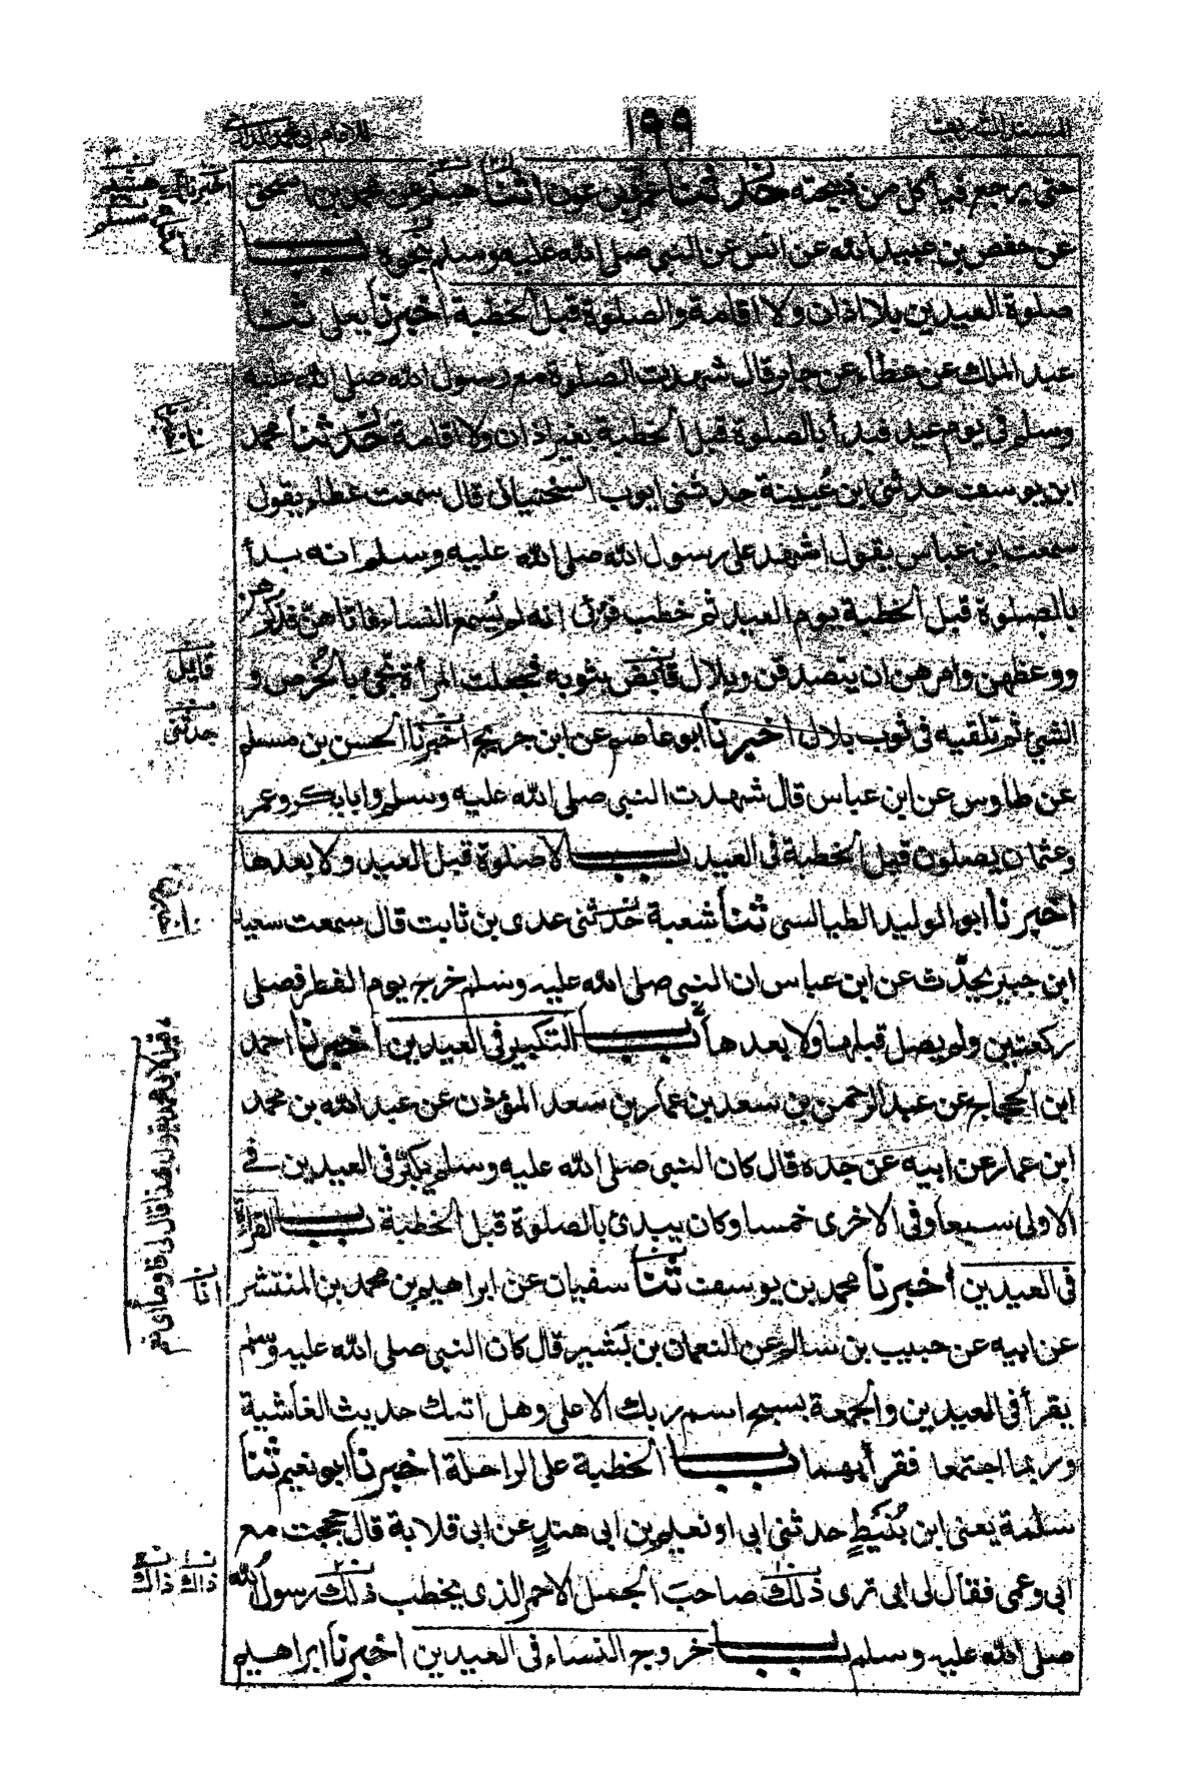 المسند الشريف
١٩٩
للامام ابى محمد الدارمى
حتى يرجع فيأكل من ذبيحته حدثنا عمرو بن عون اثنا هشيم عن محمد بن اسحق
عن حفص بن عبيد الله عن انس عن النبى صلى الله عليه وسلم نحوه باب
صلوة العيدين بلا اذان ولا اقامة والصلوة قبل الخطبة أخبرنا يعلى ثنا
عبد الملك عن عطاء عن جابر قال شهدت الصلوة مع رسول الله صلى الله عليه
وسلم فى يوم عيد فبدأ بالصلوة قبل الخطبة بغير اذان ولا اقامة حدثنا محمد
ابن يوسف حدثنى ابن عُيينة حدثنى ايوب السختيانى قال سمعت عطاء يقول
سمعت ابن عباس يقول اشهد على رسول الله صلى الله عليه وسلم انه بدأ
بالصلوة قبل الخطبة يوم العيد ثم خطب فرئى انه لم يُسمع النساء فاتاهن فذكرهن
ووعظهن وامرهن ان يتصدقن وبلال قابض بثوبه فجعلت المرأة تجئ بالخُرص و
الشئ ثم تلقيه فى ثوب بلال اخبرنا ابو عاصم عن ابن جريج اخبرنا الحسن بن مسلم
عن طاوس عن ابن عباس قال شهدت النبى صلى الله عليه وسلم وابا بكر وعمر
وعثمان يصلون قبل الخطبة فى العيد باب لا صلوة قبل العيد ولا بعدها
اخبرنا ابو الوليد الطيالسى ثنا شعبة حدثنى عدى بن ثابت قال سمعت سعيد
ابن جبير يحدّث عن ابن عباس ان النبى صلى الله عليه وسلم خرج يوم الفطر فصلى
ركعتين ولم يصل قبلها ولا بعدها باب التكبير فى العيدين اخبرنا احمد
ابن الحجاج عن عبد الرحمن بن سعد بن عمار بن سعد المؤذن عن عبد الله بن محمد
ابن عمار عن ابيه عن جده قال كان النبى صلى الله عليه وسلم يكبّر فى العيدين فى
الاولى سبعا وفى الاخرى خمسا وكان يبدئ بالصلوة قبل الخطبة باب القرأة
فى العيدين أخبرنا محمد بن يوسف ثنا سفيان عن ابراهيم بن محمد بن المنتشر
عن ابيه عن حبيب بن سالم عن النعمان بن بَشير قال كان النبى صلى الله عليه وسلم
يقرأ فى العيدين والجمعة بسبح اسم ربك الاعلى وهل اتىك حديث الغاشية
وربما اجتمعا فقرأ بهما باب الخطبة على الراحلة اخبرنا ابو نعيم ثنا
سلمة يعنى ابن نُبَيطٍ حدثنى ابى او نعيم بن ابى هندٍ عن ابى قلابة قال حججت مع
ابى وعمى فقال لى ابى ترى ذلك صاحبَ الجمل الاحمر الذى يخطب ذلك رسول الله
صلى الله عليه وسلم باب خروج النساء فى العيدين اخبرنا ابراهيم
قائل
حدثنى
قيل لابى محمد تقول بهذا قال لى قاوما اى نعم
انا
ذاك ذاك